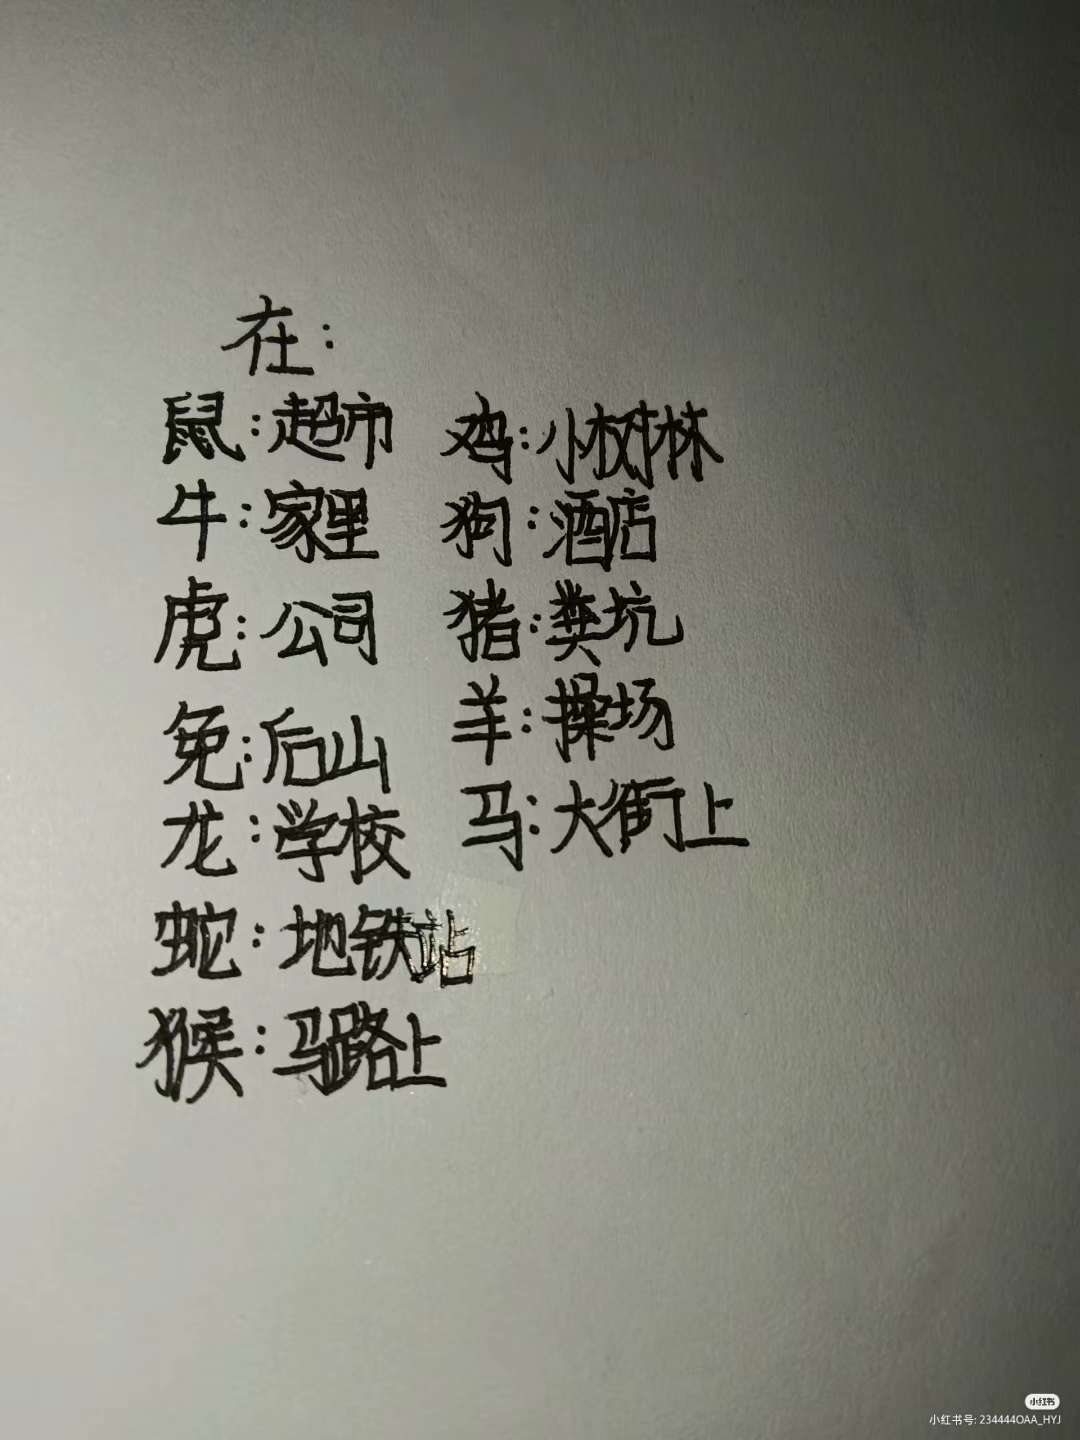 在:
鼠:超市
牛:家里
虎:公司
兔:后山
龙:学校
蛇:地铁站
猴:马路上
鸡:小树林
狗:酒店
猪:粪坑
羊:操场
马:大街上
小红书
小红书号: 234444OAA_HYJ